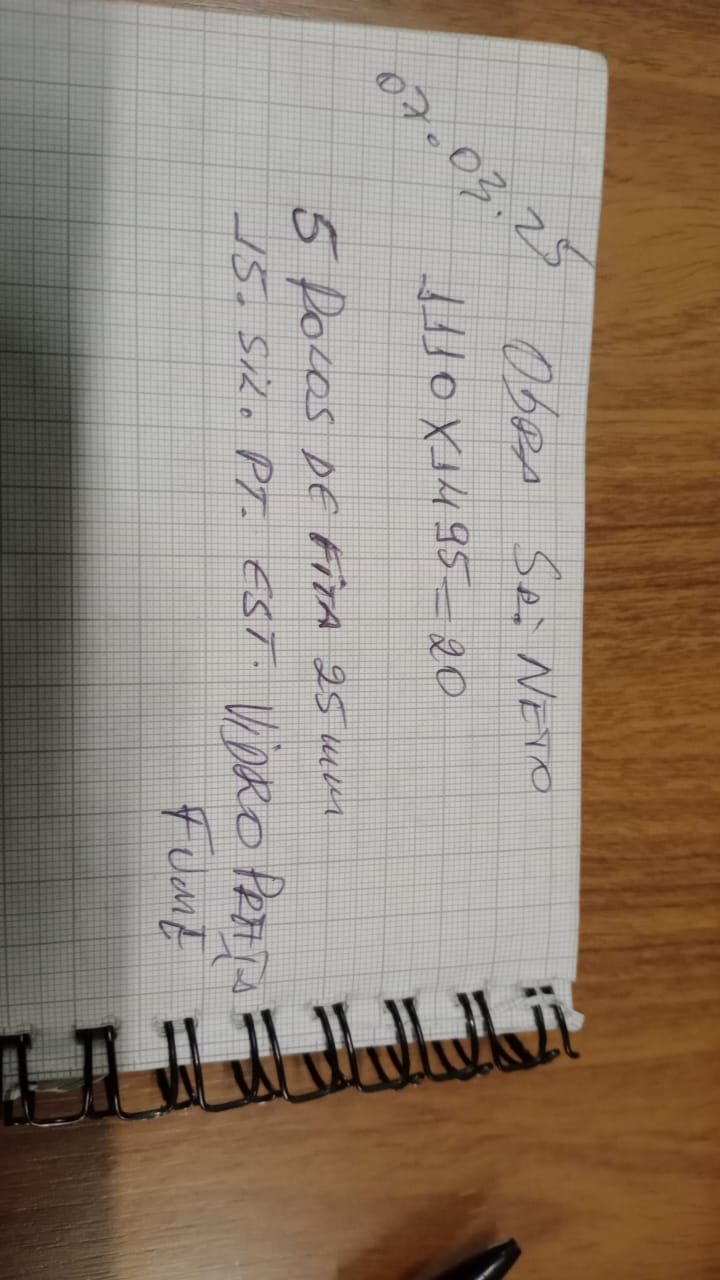 Obra Sr. NETO
1110 X 1495 = 20
5 ROLOS DE FITA 25 mm
15. SIL. PT. EST. VIDRO
FUMÊ